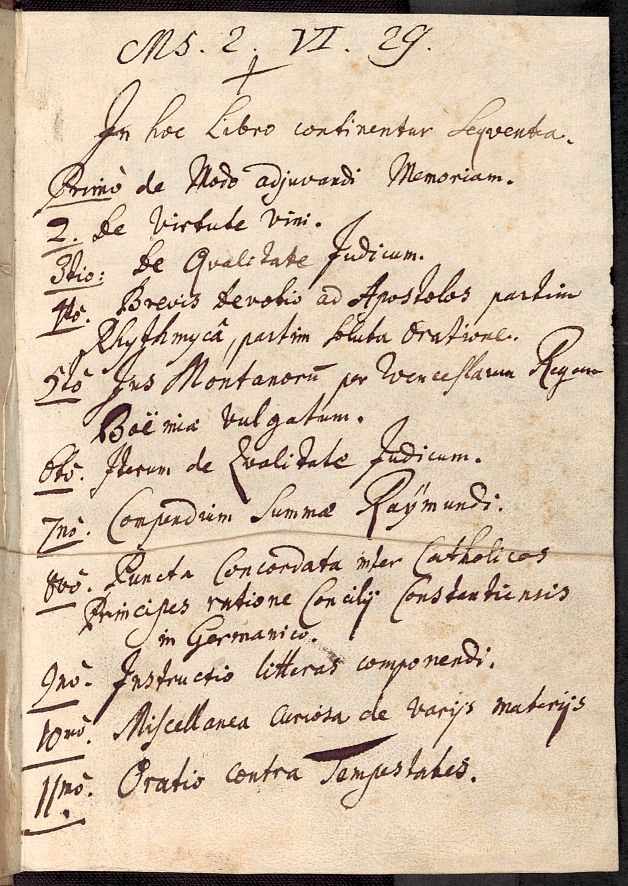 MS. 2. VI. 29.
In hoc Libro continentur Seqventia.
Primò de Modo adjuvandi Memoriam.
2. De Virtute vini.
3tio: De Qvalitate Judicum.
4tò. Brevis Devotio ad Apostolos partim
Rhythmycâ, partim soluta Oratione.
5tò Jus Montanorū per Wenceslaum Regem
Boëmiæ vulgatum.
6tò. Iterum de Qvalitate Judicum.
7mò. Compendium Summæ Raÿmundi.
8vò. Puncta Concordata inter Catholicos
Principes ratione Concilij Constantiensis
in Germanico.
9nò. Instructio litteras componendi.
10mò. Miscellanea Curiosa de varijs materijs
11mò. Oratio contra Tempestates.